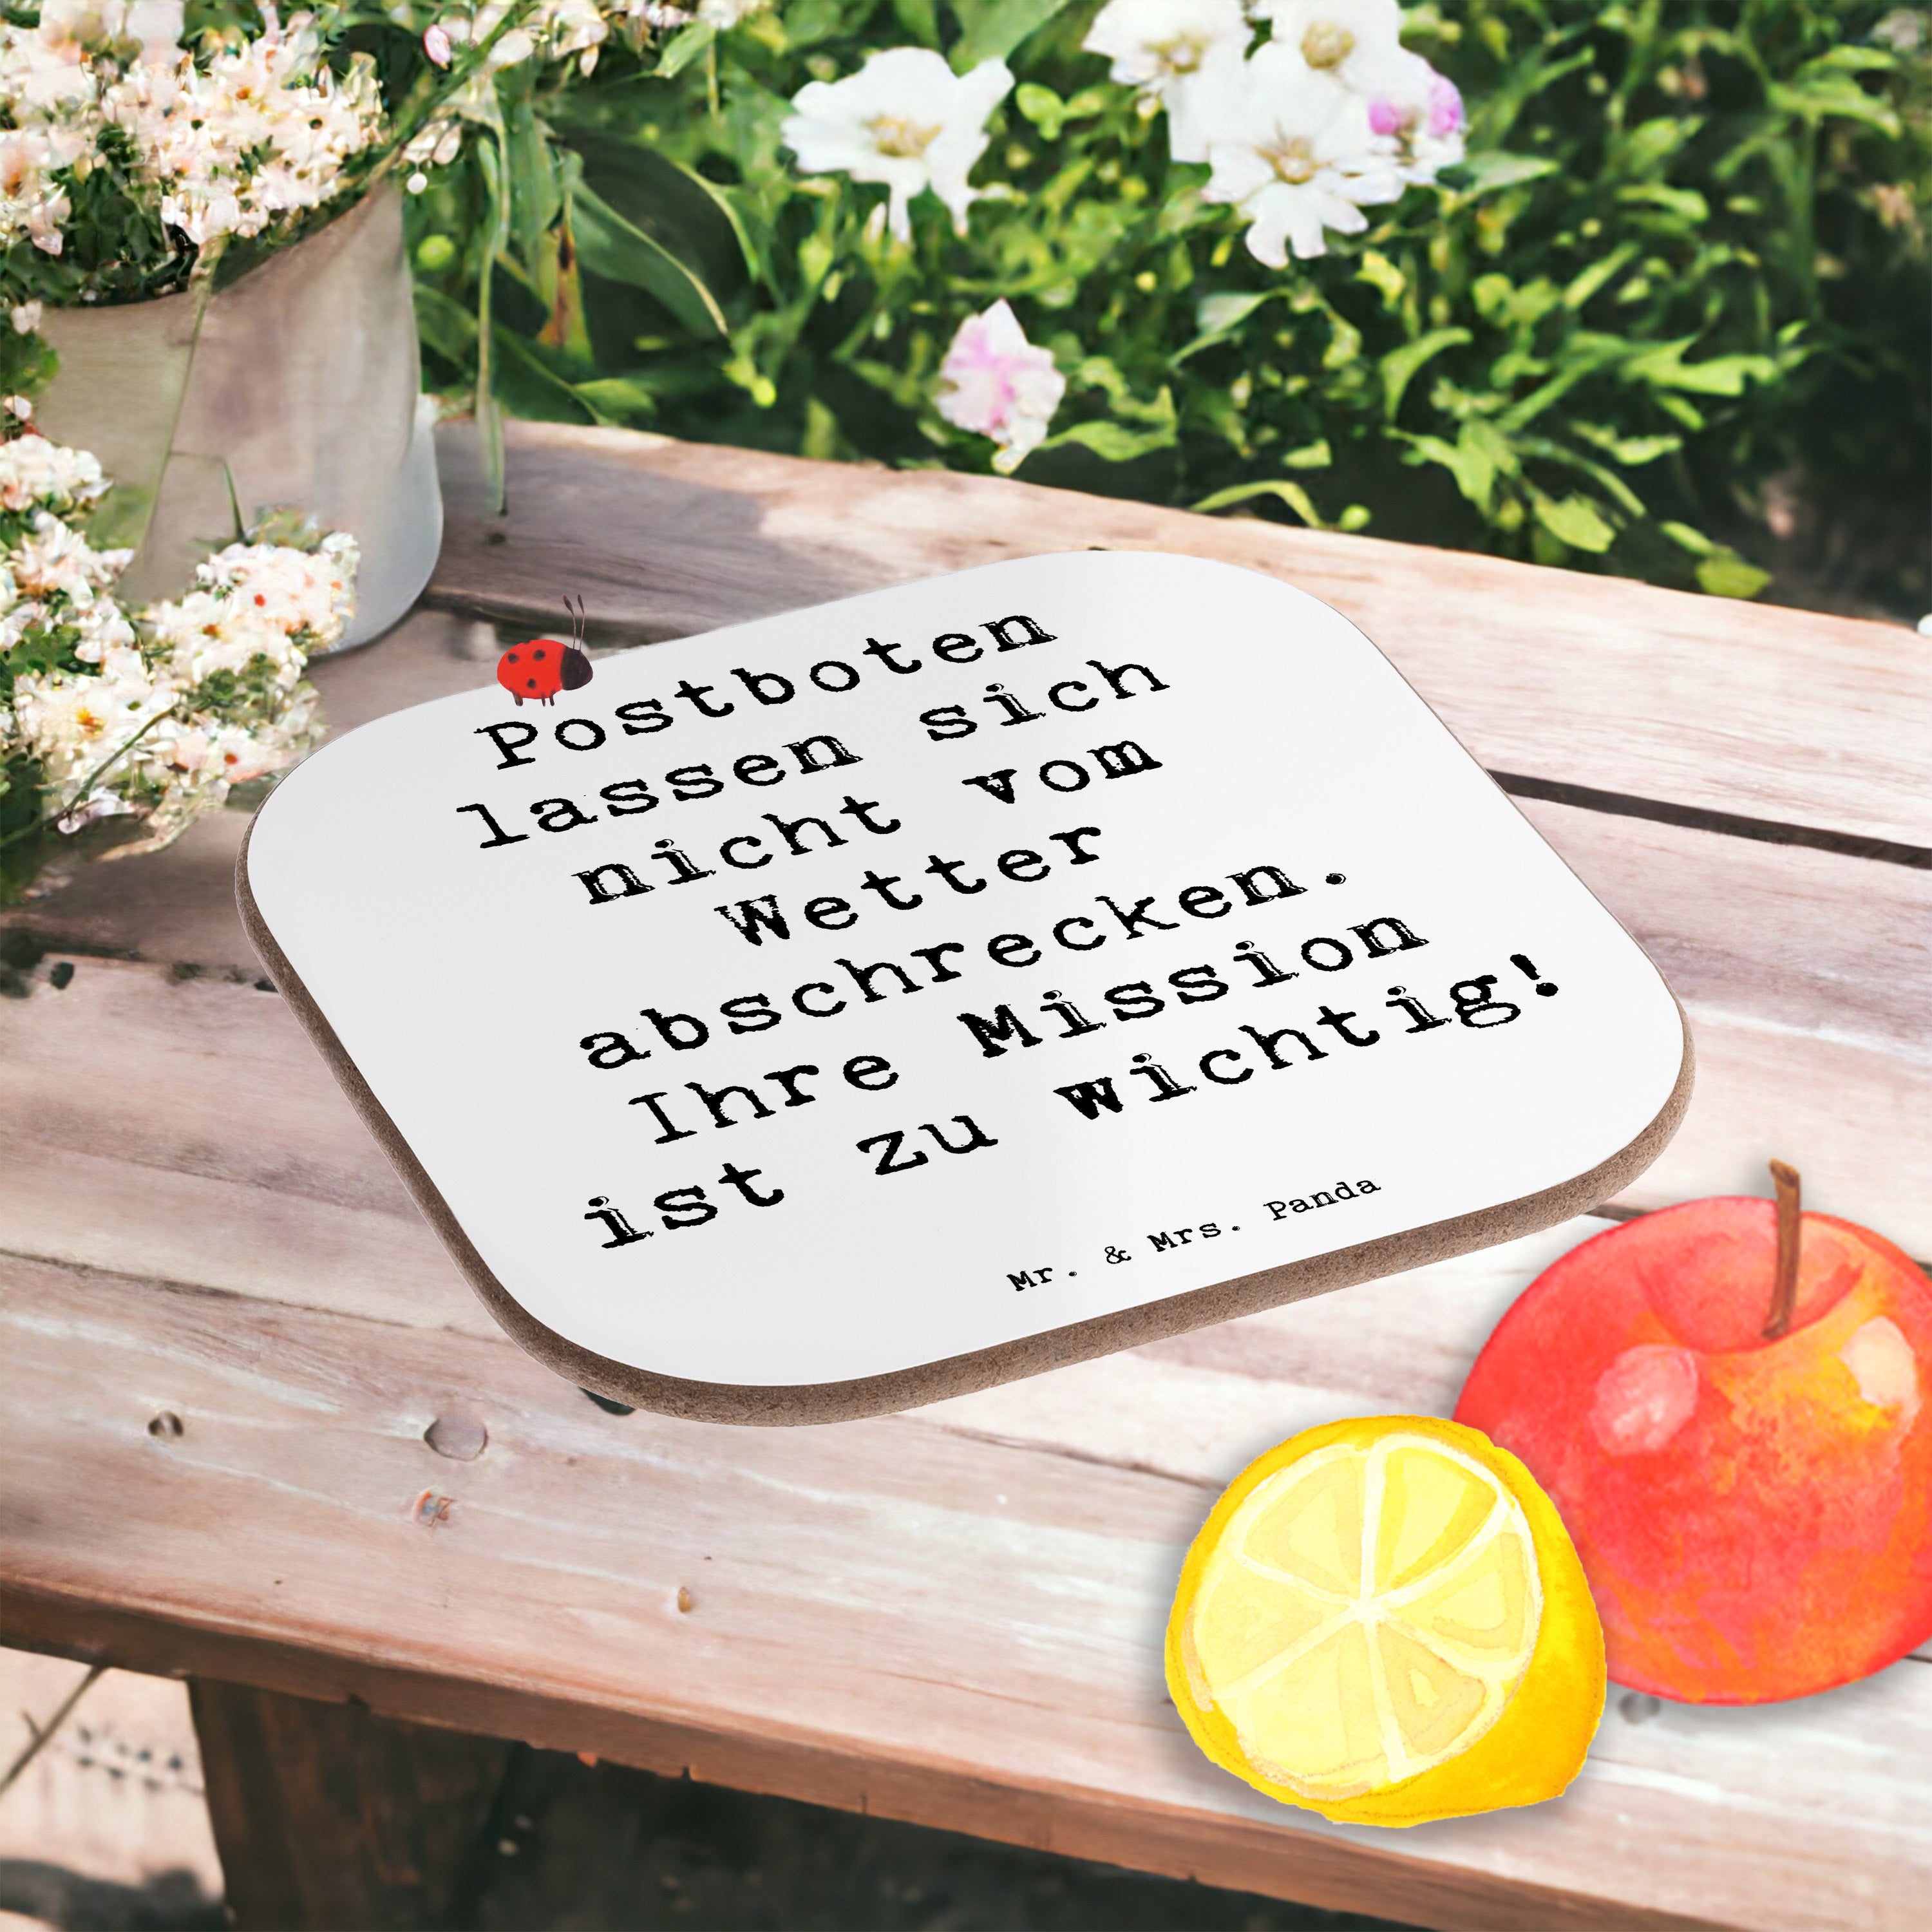 Postboten
lassen sich
nicht vom
Wetter
abschrecken.
Ihre Mission
ist zu wichtig!
Mr. & Mrs. Panda